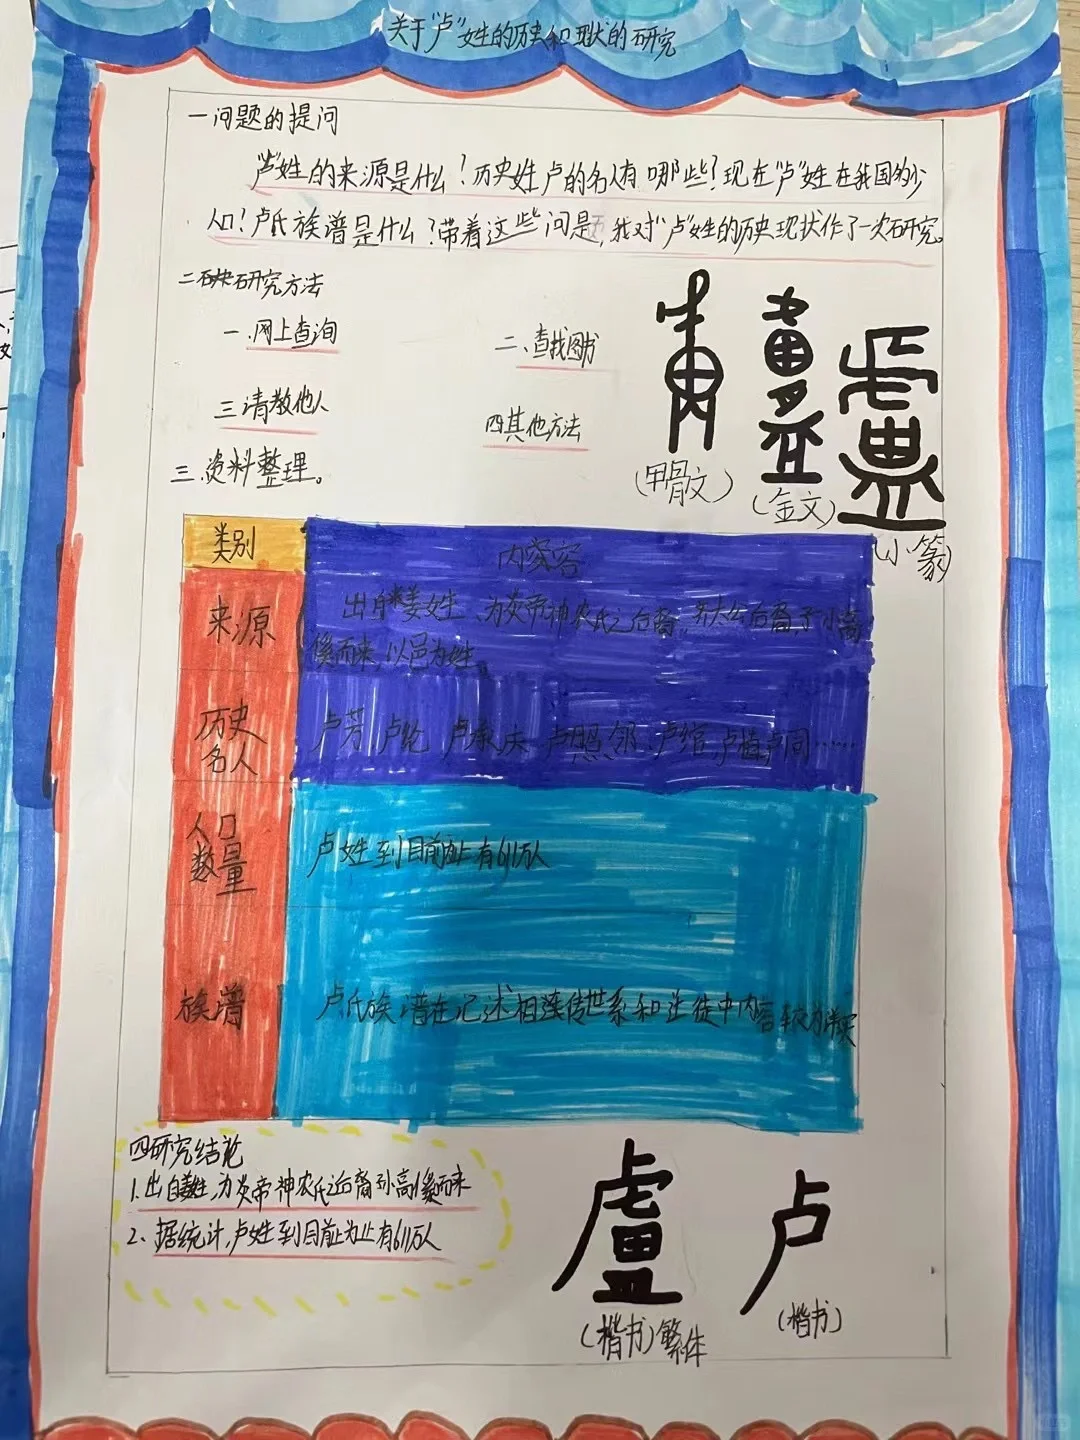 关于"卢"姓的历史和现状的研究
一问题的提问
"卢"姓的来源是什么?历史姓卢的名人有哪些?现在"卢"姓在我国的多少
人口?卢氏族谱是什么?带着这些问题,我对"卢"姓的历史现状作了一次研究。
二研究方法
一.网上查询
二、查找图书
三请教他人
四其他方法
(甲骨文)
(金文)
(小篆)
三.资料整理。
类别
内容
来源
出自姜姓、为炎帝神农氏之后裔,齐太公后裔,子小高
傒而来,以邑为姓
历史
名人
卢芳 卢纶 卢承庆 卢照邻、卢绾,卢植,卢同……
人口
数量
卢姓到目前止有611万人
族谱
卢氏族谱在记述相连传世系和迁徙中内容较为详实
四研究结论
1.出自姜姓,为炎帝神农氏之后裔孙高傒而来
2、据统计,卢姓到目前止为止有611万人
盧
(楷书)繁体
卢
(楷书)